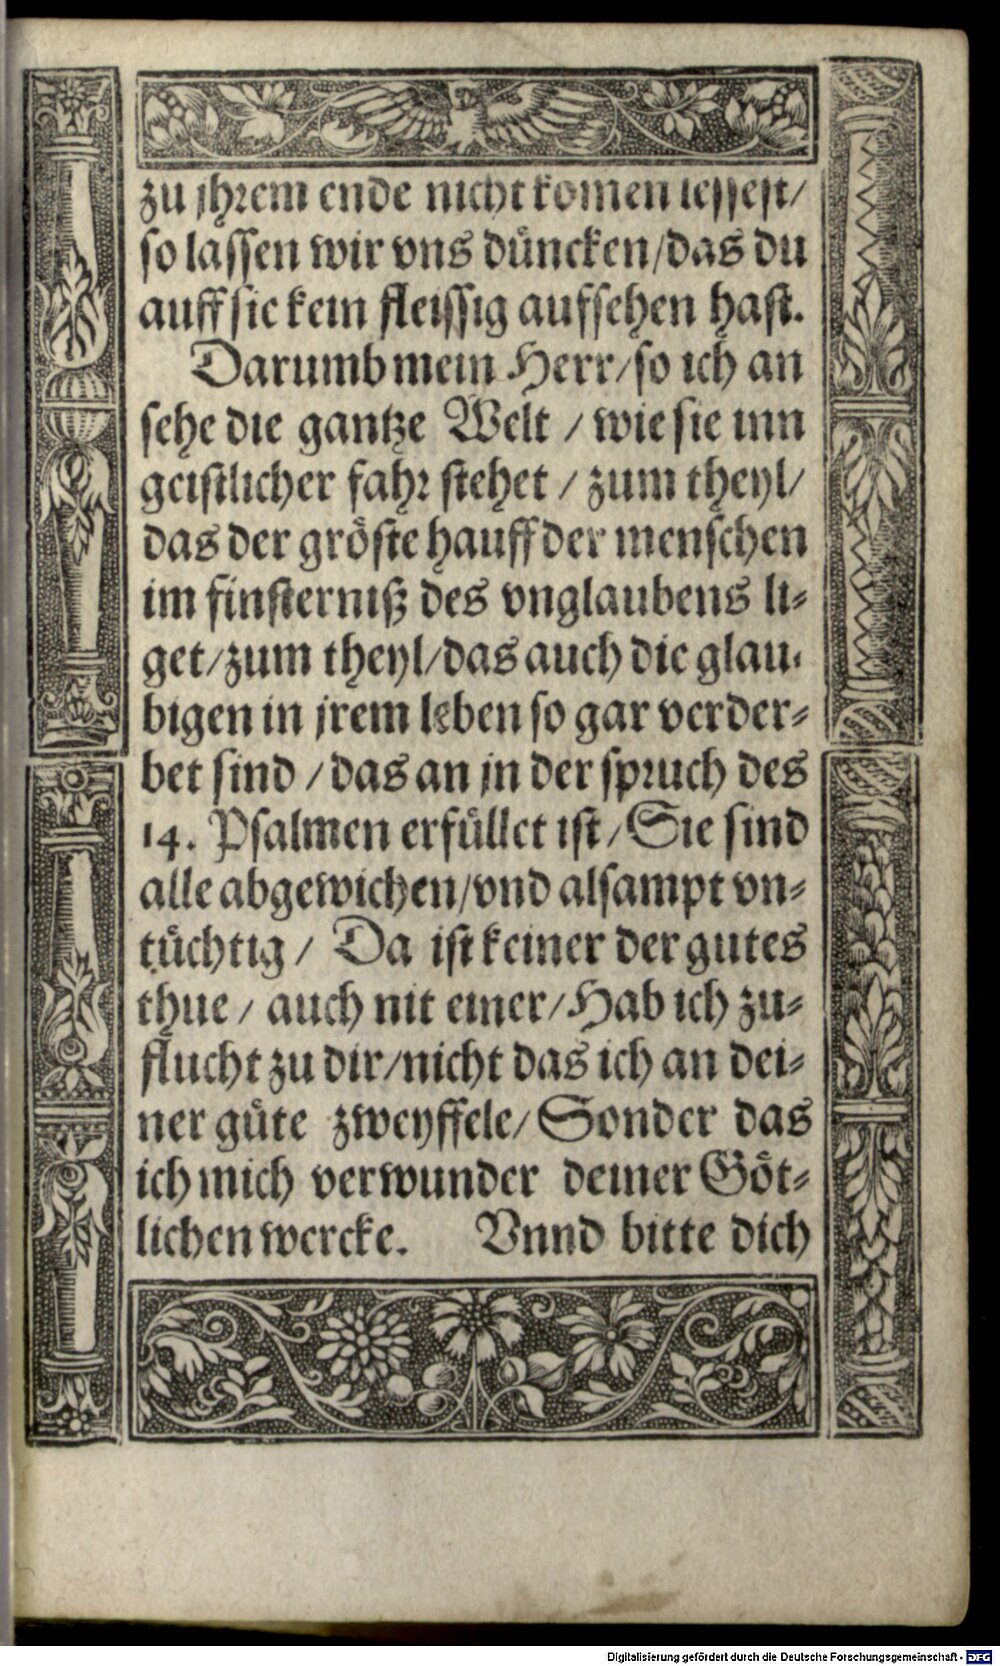 zu jhrem ende nicht komen lessest/
so lassen wir vns düncken/das du
auff sie kein fleissig aufsehen hast.
Darumb mein Herr/so ich an
sehe die gantze Welt / wie sie inn
geistlicher fahr stehet / zum theyl/
das der gröste hauff der menschen
im finsterniß des vnglaubens li-
get/zum theyl/das auch die glau-
bigen in jrem leben so gar verder-
bet sind / das an jn der spruch des
14. Psalmen erfüllet ist/Sie sind
alle abgewichen/vnd alsampt vn-
tüchtig / Da ist keiner der gutes
thue / auch nit einer/Hab ich zu-
flucht zu dir/nicht das ich an dei-
ner güte zweyffele/Sonder das
ich mich verwunder deiner Göt-
lichen wercke. Vnnd bitte dich
Digitalisierung gefördert durch die Deutsche Forschungsgemeinschaft - DFG